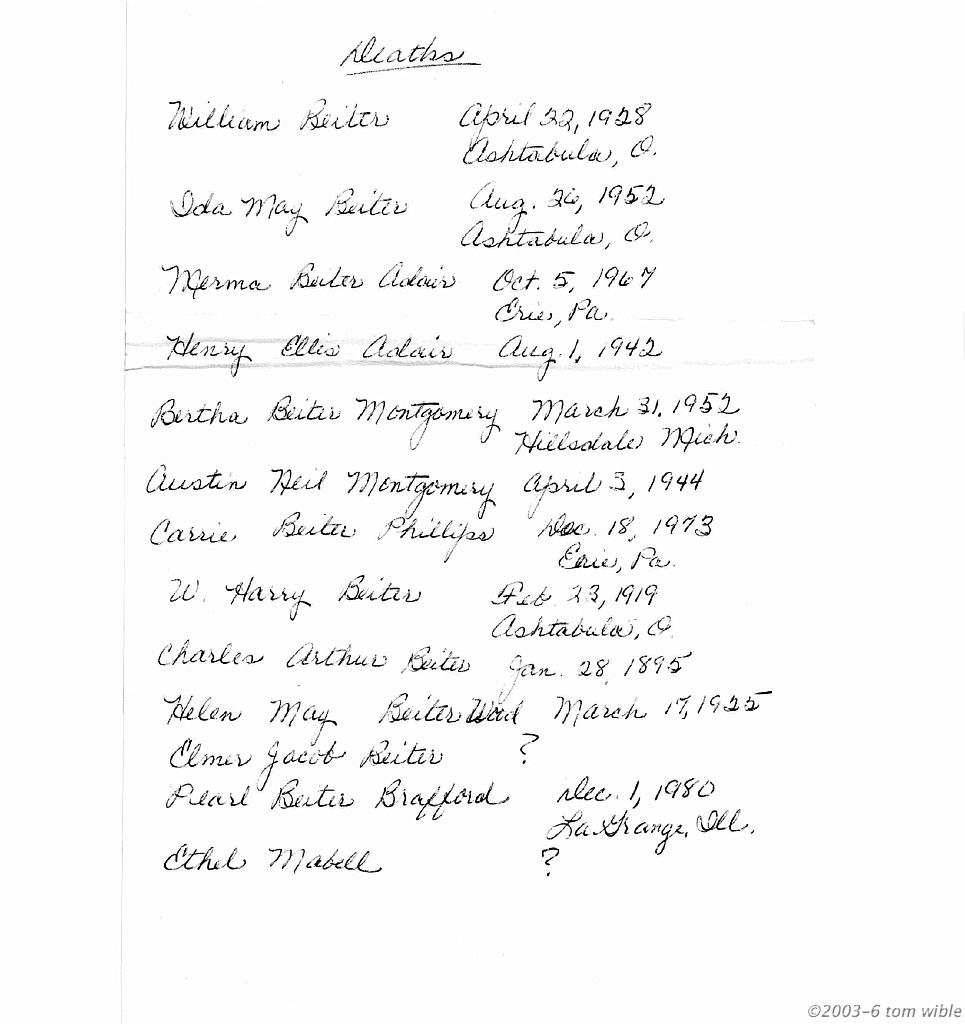 Deaths
William Beiter April 22, 1928
Ashtabula, O.
Ida May Beiter Aug. 26, 1952
Ashtabula, O.
Merma Beiter Adair Oct. 5, 1967
Erie, Pa.
Henry Ellis Adair Aug. 1, 1942
Bertha Beiter Montgomery March 31, 1952
Hillsdale Mich.
Austin Neil Montgomery April 3, 1944
Carrie Beiter Phillips Dec. 18, 1973
Erie, Pa.
W. Harry Beiter Feb. 23, 1919
Ashtabula, O.
Charles Arthur Beiter Jan. 28, 1895
Helen May Beiter March 17, 1925
Elmer Jacob Beiter ?
Pearl Beiter Brafford Dec. 1, 1980
LaGrange, Ill.
Ethel Mabell ?
©2003-6 tom wible